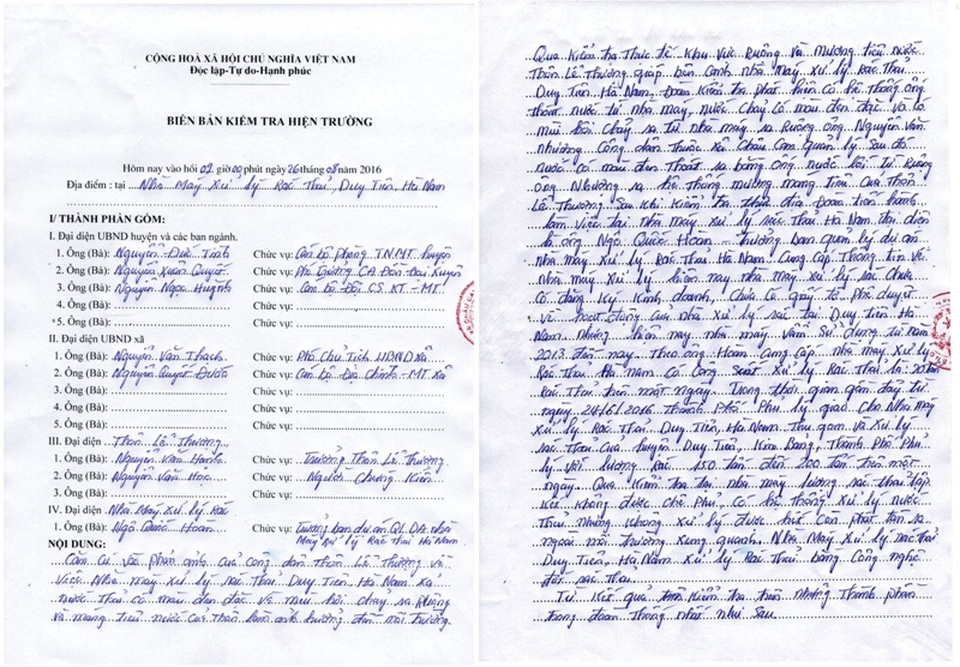 CỘNG HOÀ XÃ HỘI CHỦ NGHĨA VIỆT NAM
Độc lập-Tự do-Hạnh phúc
BIÊN BẢN KIỂM TRA HIỆN TRƯỜNG
Hôm nay vào hồi 09 giờ 00 phút ngày 26 tháng 08 năm 2016
Địa điểm : tại Nhà Máy Xử lý Rác Thải, Duy Tiên, Hà Nam
I/ THÀNH PHẦN GỒM:
I. Đại diện UBND huyện và các ban ngành.
1. Ông (Bà): Nguyễn Đức Chức vụ: Cán bộ phòng TN.MT huyện
2. Ông (Bà): Nguyễn Xuân Quyết Chức vụ: Phó trưởng CA Đồn
3. Ông (Bà): Nguyễn Ngọc Huỳnh Chức vụ: Cán bộ Đội CS KT - MT.
4. Ông (Bà): Chức vụ:
5. Ông (Bà): Chức vụ:
II. Đại diện UBND xã
1. Ông (Bà): Nguyễn Văn Thạch Chức vụ: Phó Chủ Tịch UBND xã
2. Ông (Bà): Nguyễn Quyết Chức vụ: Cán bộ Địa Chính - MT xã
3. Ông (Bà): Chức vụ:
4. Ông (Bà): Chức vụ:
5. Ông (Bà): Chức vụ:
III. Đại diện Thôn Lê Thượng
1. Ông (Bà): Nguyễn Văn Chức vụ: Trưởng Thôn Lê Thượng
2. Ông (Bà): Nguyễn Văn Học Chức vụ: Người Chứng Kiến
3. Ông (Bà): Chức vụ:
IV. Đại diện Nhà Máy Xử lý Rác
1. Ông (Bà): Ngô Quốc Hoàn Chức vụ: Trưởng ban dự án QL DA nhà
Máy xử lý Rác thải Hà Nam
NỘI DUNG:
Căn cứ vào phản ánh của công dân Thôn Lê Thượng về
việc Nhà máy xử lý rác Thải Duy Tiên Hà Nam xả
nước Thải có màu đen đặc và mùi hôi chảy ra Ruộng
và mương tiêu nước của Thôn làm ảnh hưởng đến môi trường.
Qua Kiểm tra Thực tế Khu vực Ruộng và Mương tiêu nước
Thôn Lê Thượng giáp bên cạnh nhà Máy xử lý Rác Thải
Duy Tiên, Hà Nam. Đoàn Kiểm tra phát hiện có hệ Thống ống
nước từ nhà máy, nước chảy có màu đen đặc và có
mùi hôi chảy ra từ nhà máy ra Ruộng ông Nguyễn Văn
Nhương Công dân thuộc xã Châu Can quản lý. Sau đó
nước có màu đen Thoát ra bằng ống nước nối từ Ruộng
ông Nhương ra hệ thống mương máng tiêu của Thôn
Lê Thượng. Sau khi Kiểm tra thực địa Đoàn tiến hành
làm việc tại nhà máy xử lý rác Thải Hà Nam đại diện
là ông Ngô Quốc Hoàn - Trưởng ban quản lý dự án
nhà máy Xử lý Rác Thải Hà Nam Cung Cấp Thông tin về
nhà máy xử lý hiện nay nhà máy xử lý rác chưa
có đăng ký Kinh doanh, chưa có giấy tờ phê duyệt
về hoạt động của nhà xử lý rác tại Duy Tiên Hà
Nam nhưng hiện nay nhà máy vẫn sử dụng từ năm
2013 đến nay. Theo ông Hoàn cung cấp nhà máy xử lý
Rác Thải Hà Nam có công suất xử lý Rác Thải là:
Rác Thải trên một ngày. Trong thời gian gần đây từ
ngày 2016 Thành Phố Phủ lý giao cho Nhà máy
xử lý Rác Thải Duy Tiên, Hà Nam Thu gom và xử lý
rác Thải của huyện Duy Tiên, Kim Bảng, Thành Phố Phủ
lý với lượng Rác 150 tấn đến 200 tấn trên một
ngày. Qua Kiểm tra tại nhà máy lượng rác thải tập
kết không được che phủ. Có hệ thống xử lý nước
Thải nhưng không xử lý được hết còn phát tán ra
ngoài môi trường xung quanh. Nhà Máy xử lý rác thải
Duy Tiên, Hà Nam xử lý Rác Thải bằng công nghệ
đốt rác thải.
Từ kết quả Kiểm tra trên những Thành phần
trong đoàn Thống nhất như sau.